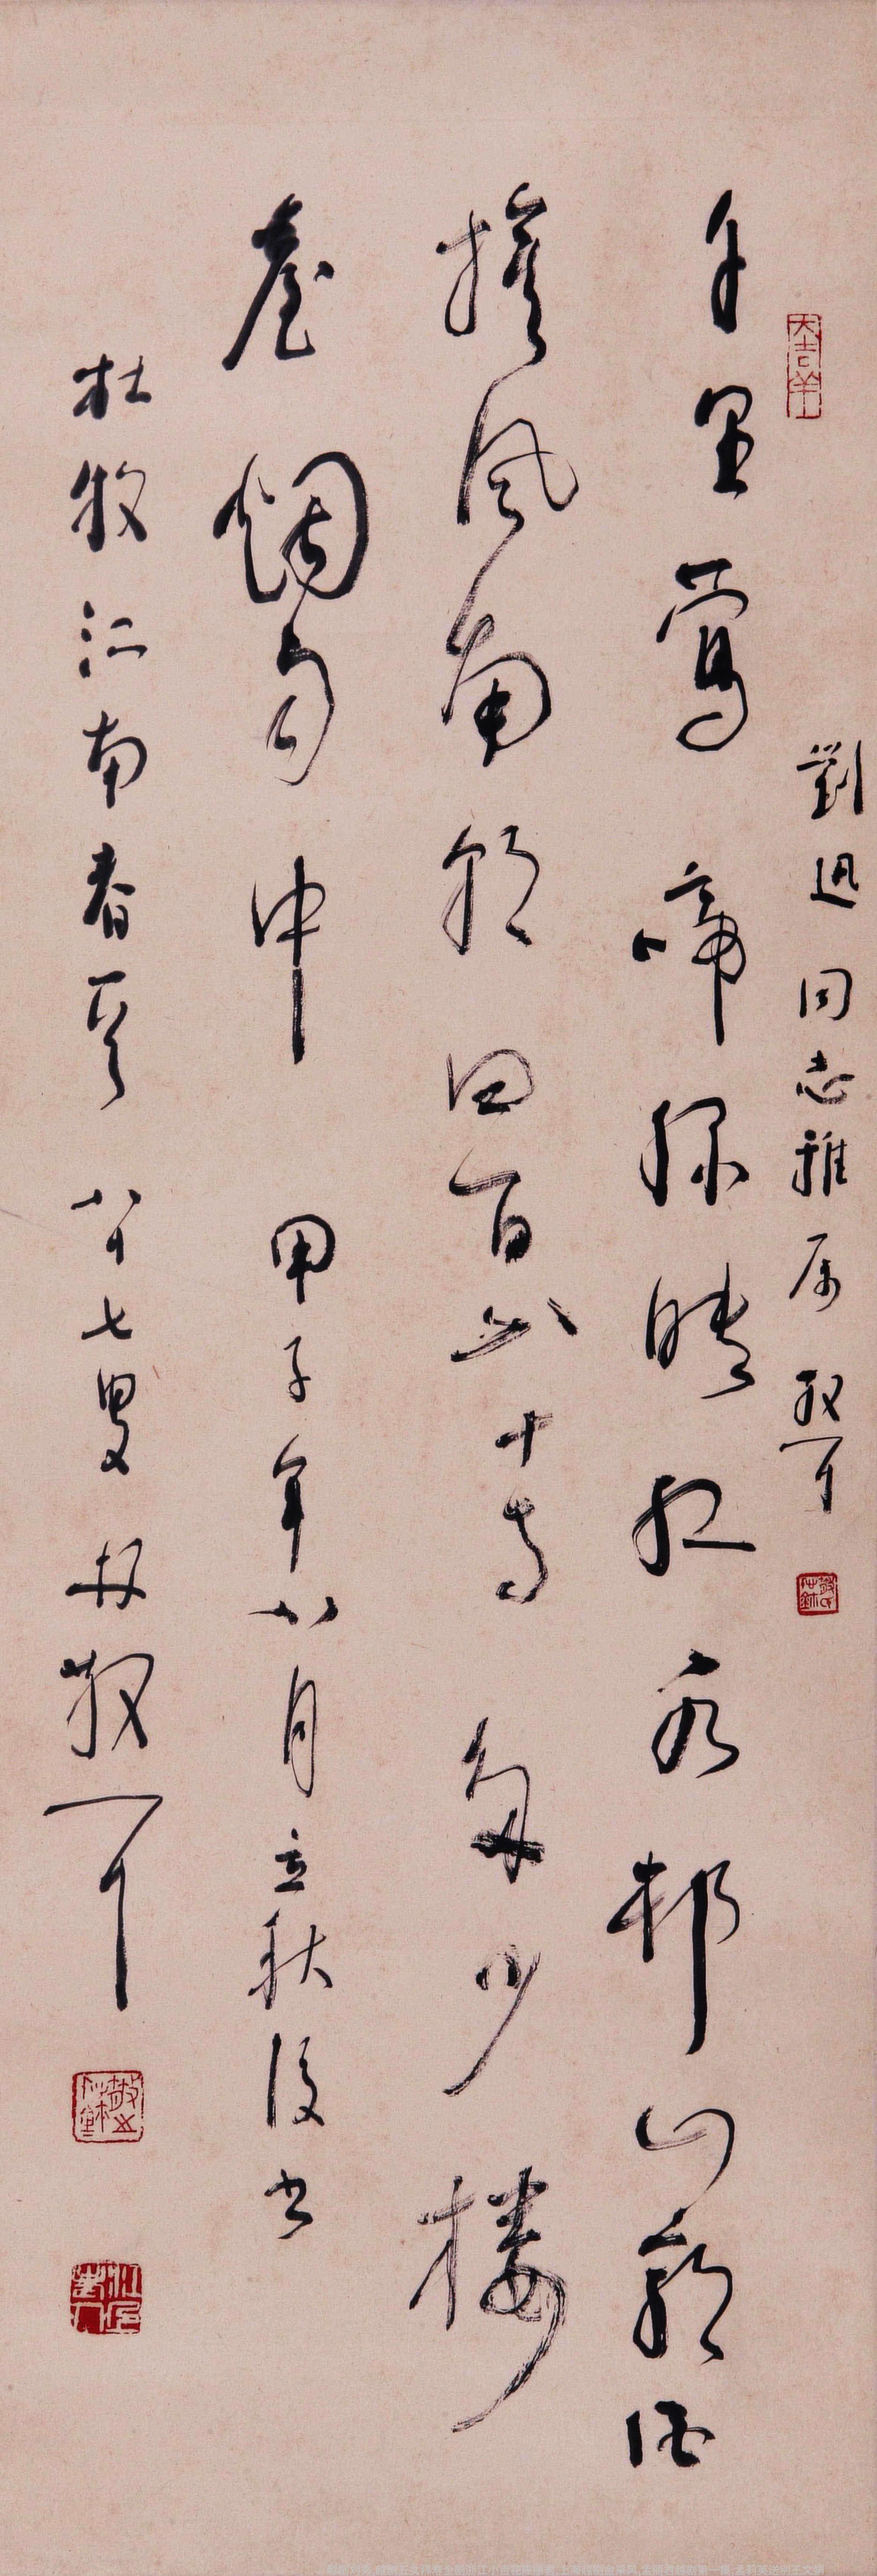 大吉羊
劉迅同志雅属 散耳
千里鶯啼綠映紅水邨山郭酒
旗風南朝四百八十寺多少樓
臺烟雨中 甲子年八月立秋後书
杜牧江南春 八十七叟林散耳